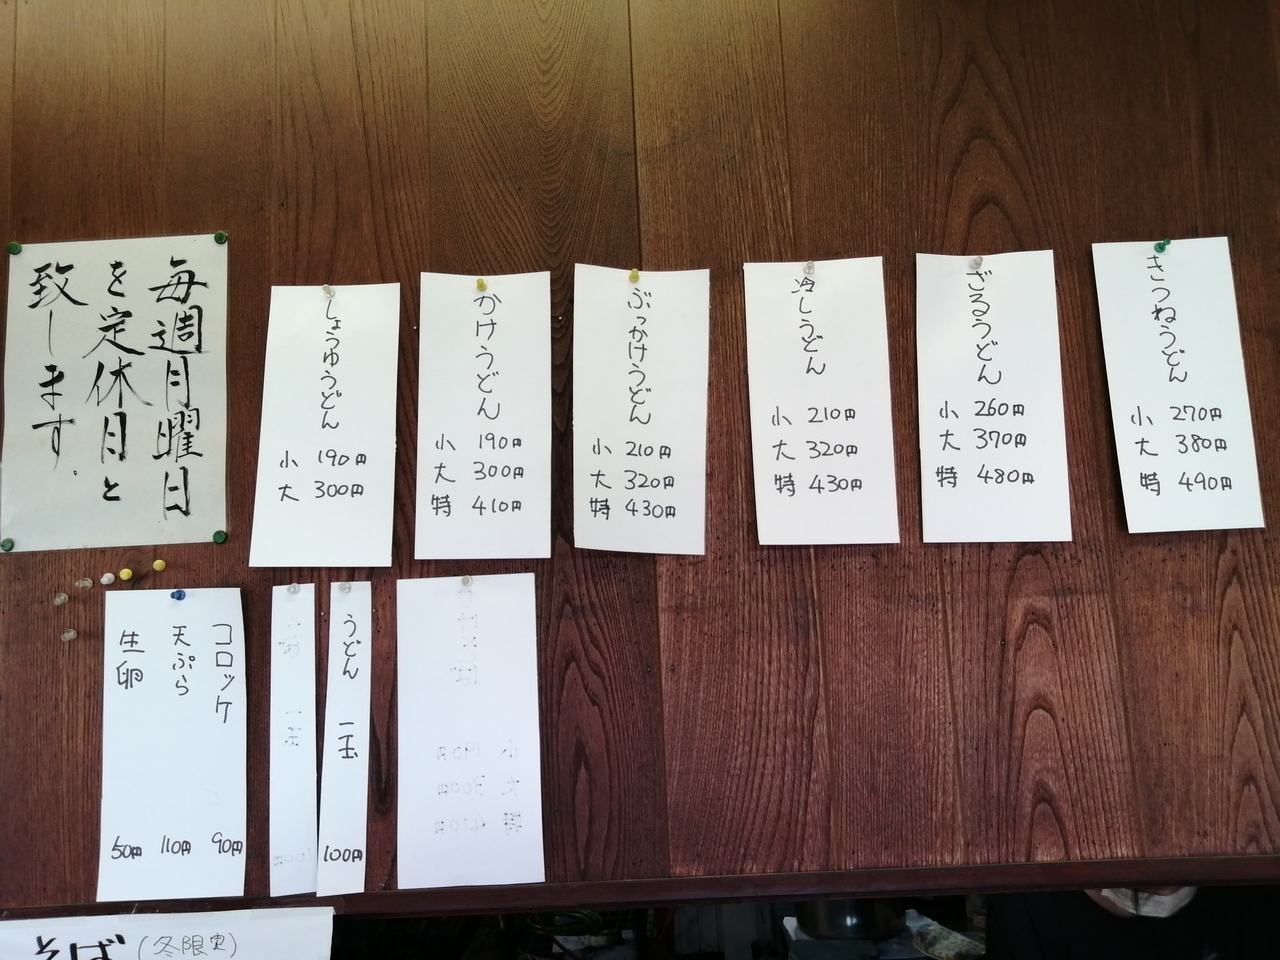 毎週月曜日
を定休日と
致します.
しょうゆうどん
小 190円
大 300円
かけうどん
小 190円
大 300円
特 410円
ぶっかけうどん
小 210円
大 320円
特 430円
冷しうどん
小 210円
大 320円
特 430円
ざるうどん
小 260円
大 370円
特 480円
きつねうどん
小 270円
大 380円
特 490円
コロッケ 90円
天ぷら 110円
生卵 50円
うどん 一玉 100円
そば(冬限定)